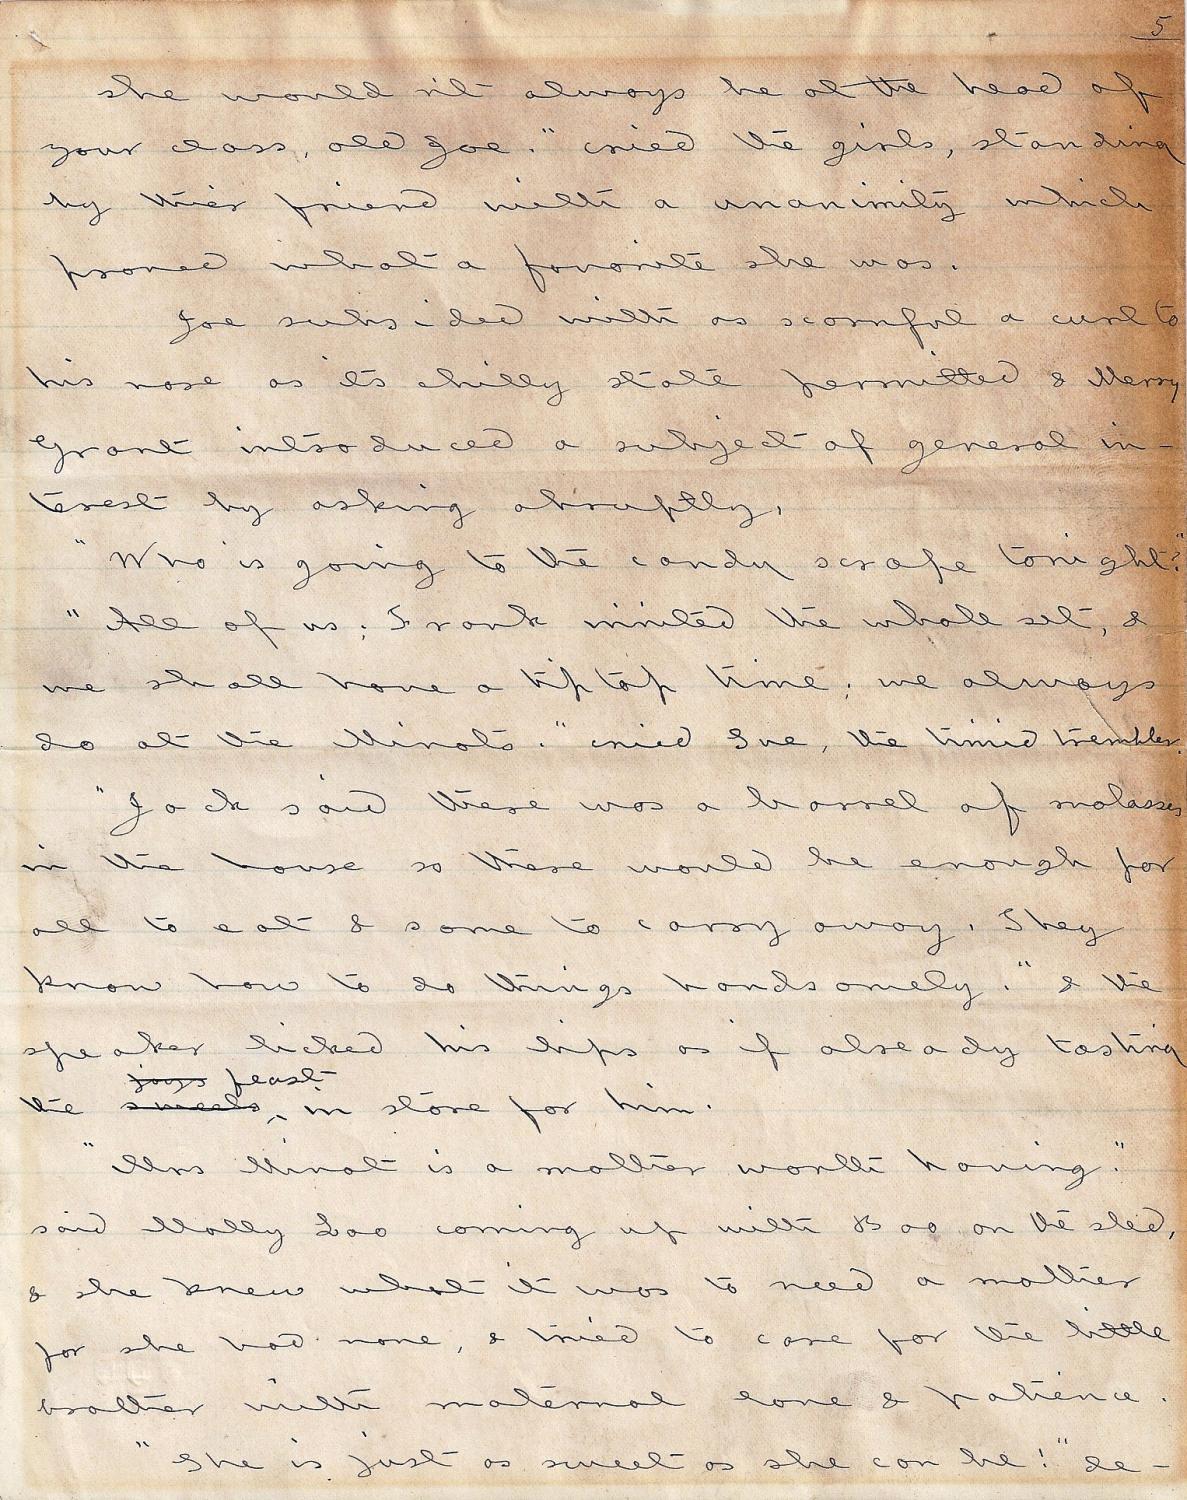 5
she would n't always be at the head of
your class, old Joe." cried the girls, standing
by thier friend with a unanimity which
proved what a favorite she was.
Joe subsided with as scornful a curl to
his nose as its chilly state permitted & Merry
Grant introduced a subject of general in-
terest by asking abruptly,
"Who is going to the candy scrape tonight?"
"All of us; Frank invited the whole set, &
we shall have a tiptop time; we always
do at the Minots." cried Sue, the timid trembler.
"Jack said there was a barrel of molasses
in the house so there would be enough for
all to eat & some to carry away. They
know how to do things handsomely." & the
speaker licked his lips as if already tasting
joys feast
the sweets in store for him.
"Mrs Minot is a mother worth having."
said Molly Loo coming up with Boo on the sled,
& she knew what it was to need a mother
for she had none, & tried to care for the little
brother with maternal love & patience.
"She is just as sweet as she can be!" de-